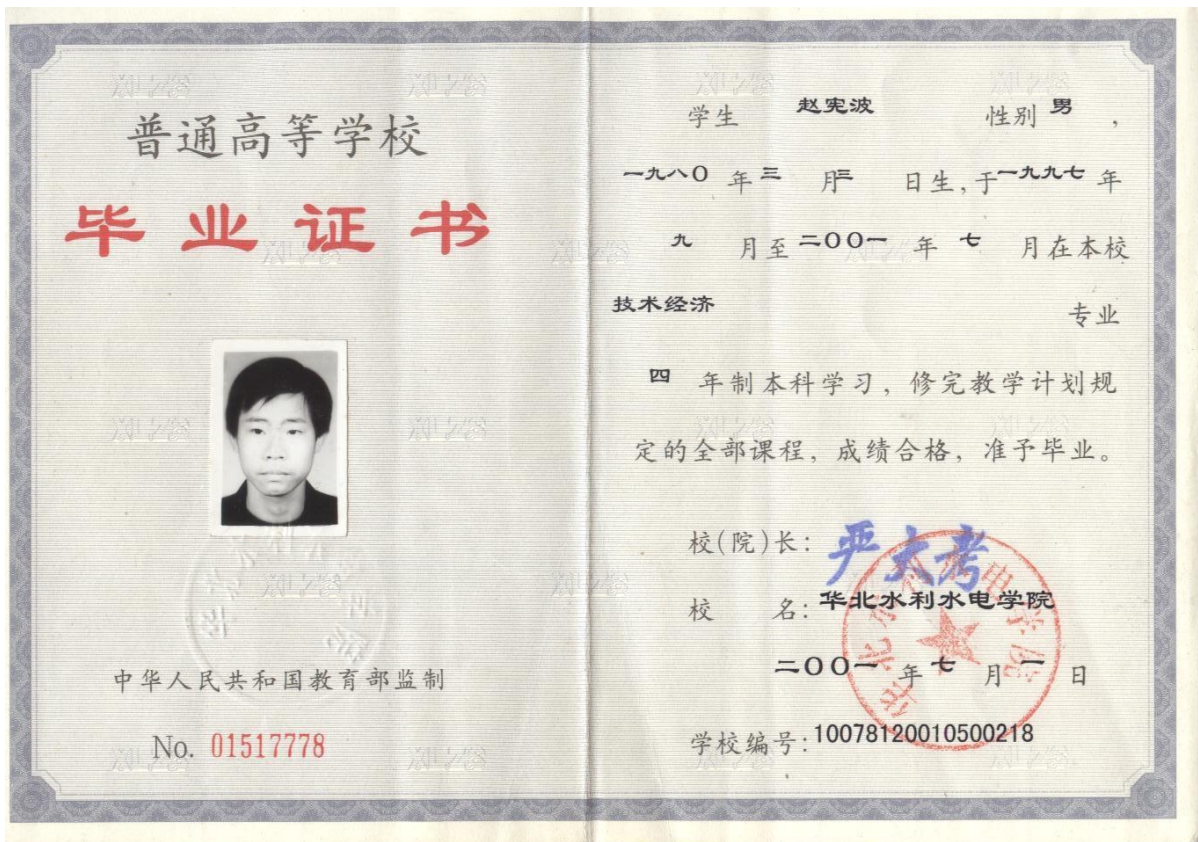 普通高等学校
毕业证书
中华人民共和国教育部监制
No. 01517778
学生 赵宪波 性别 男，
一九八〇 年 三 月 三 日生，于 一九九七 年
九 月至 二〇〇一 年 七 月在本校
技术经济 专业
四 年制本科学习，修完教学计划规
定的全部课程，成绩合格，准予毕业。
校(院)长：严大考
校 名：华北水利水电学院
二〇〇一 年 七 月 一 日
学校编号：10078120010500218
华北水利水电学院
华北水利水电学院